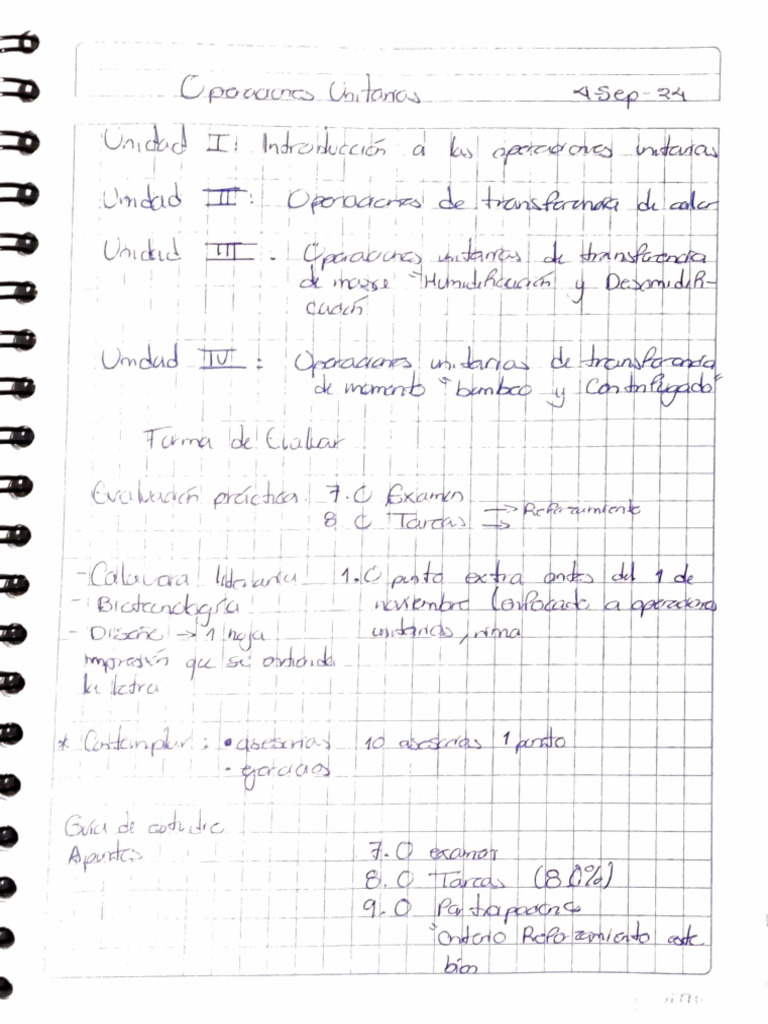 Operaciones Unitarias 4-Sep-24
Unidad I: Introducción a las operaciones unitarias
Unidad II: Operaciones de transferencia de calor
Unidad III. Operaciones unitarias de transferencia
de masa "Humidificación y Desomidifi-
cación
Unidad IV: Operaciones unitarias de transferencia
de momento "bombeo y Centrifugado"
Forma de Evaluar
Evaluación práctica 7.0 Examen
8.0 Tareas → Reforzamiento
→
- Calavera literaria 1.0 punto extra antes del 1 de
- Biotecnología noviembre (enfocada a operaciones
- Diseño → 1 hoja unitarias, rima
impresión que se entienda
la letra
* Contemplar: • asesorias 10 asesorias 1 punto
• ejercicios
Guía de estudio
Apuntes 7.0 examen
8.0 Tareas (80%)
9.0 Participaciones
"Criterio Reforzamiento este
bien